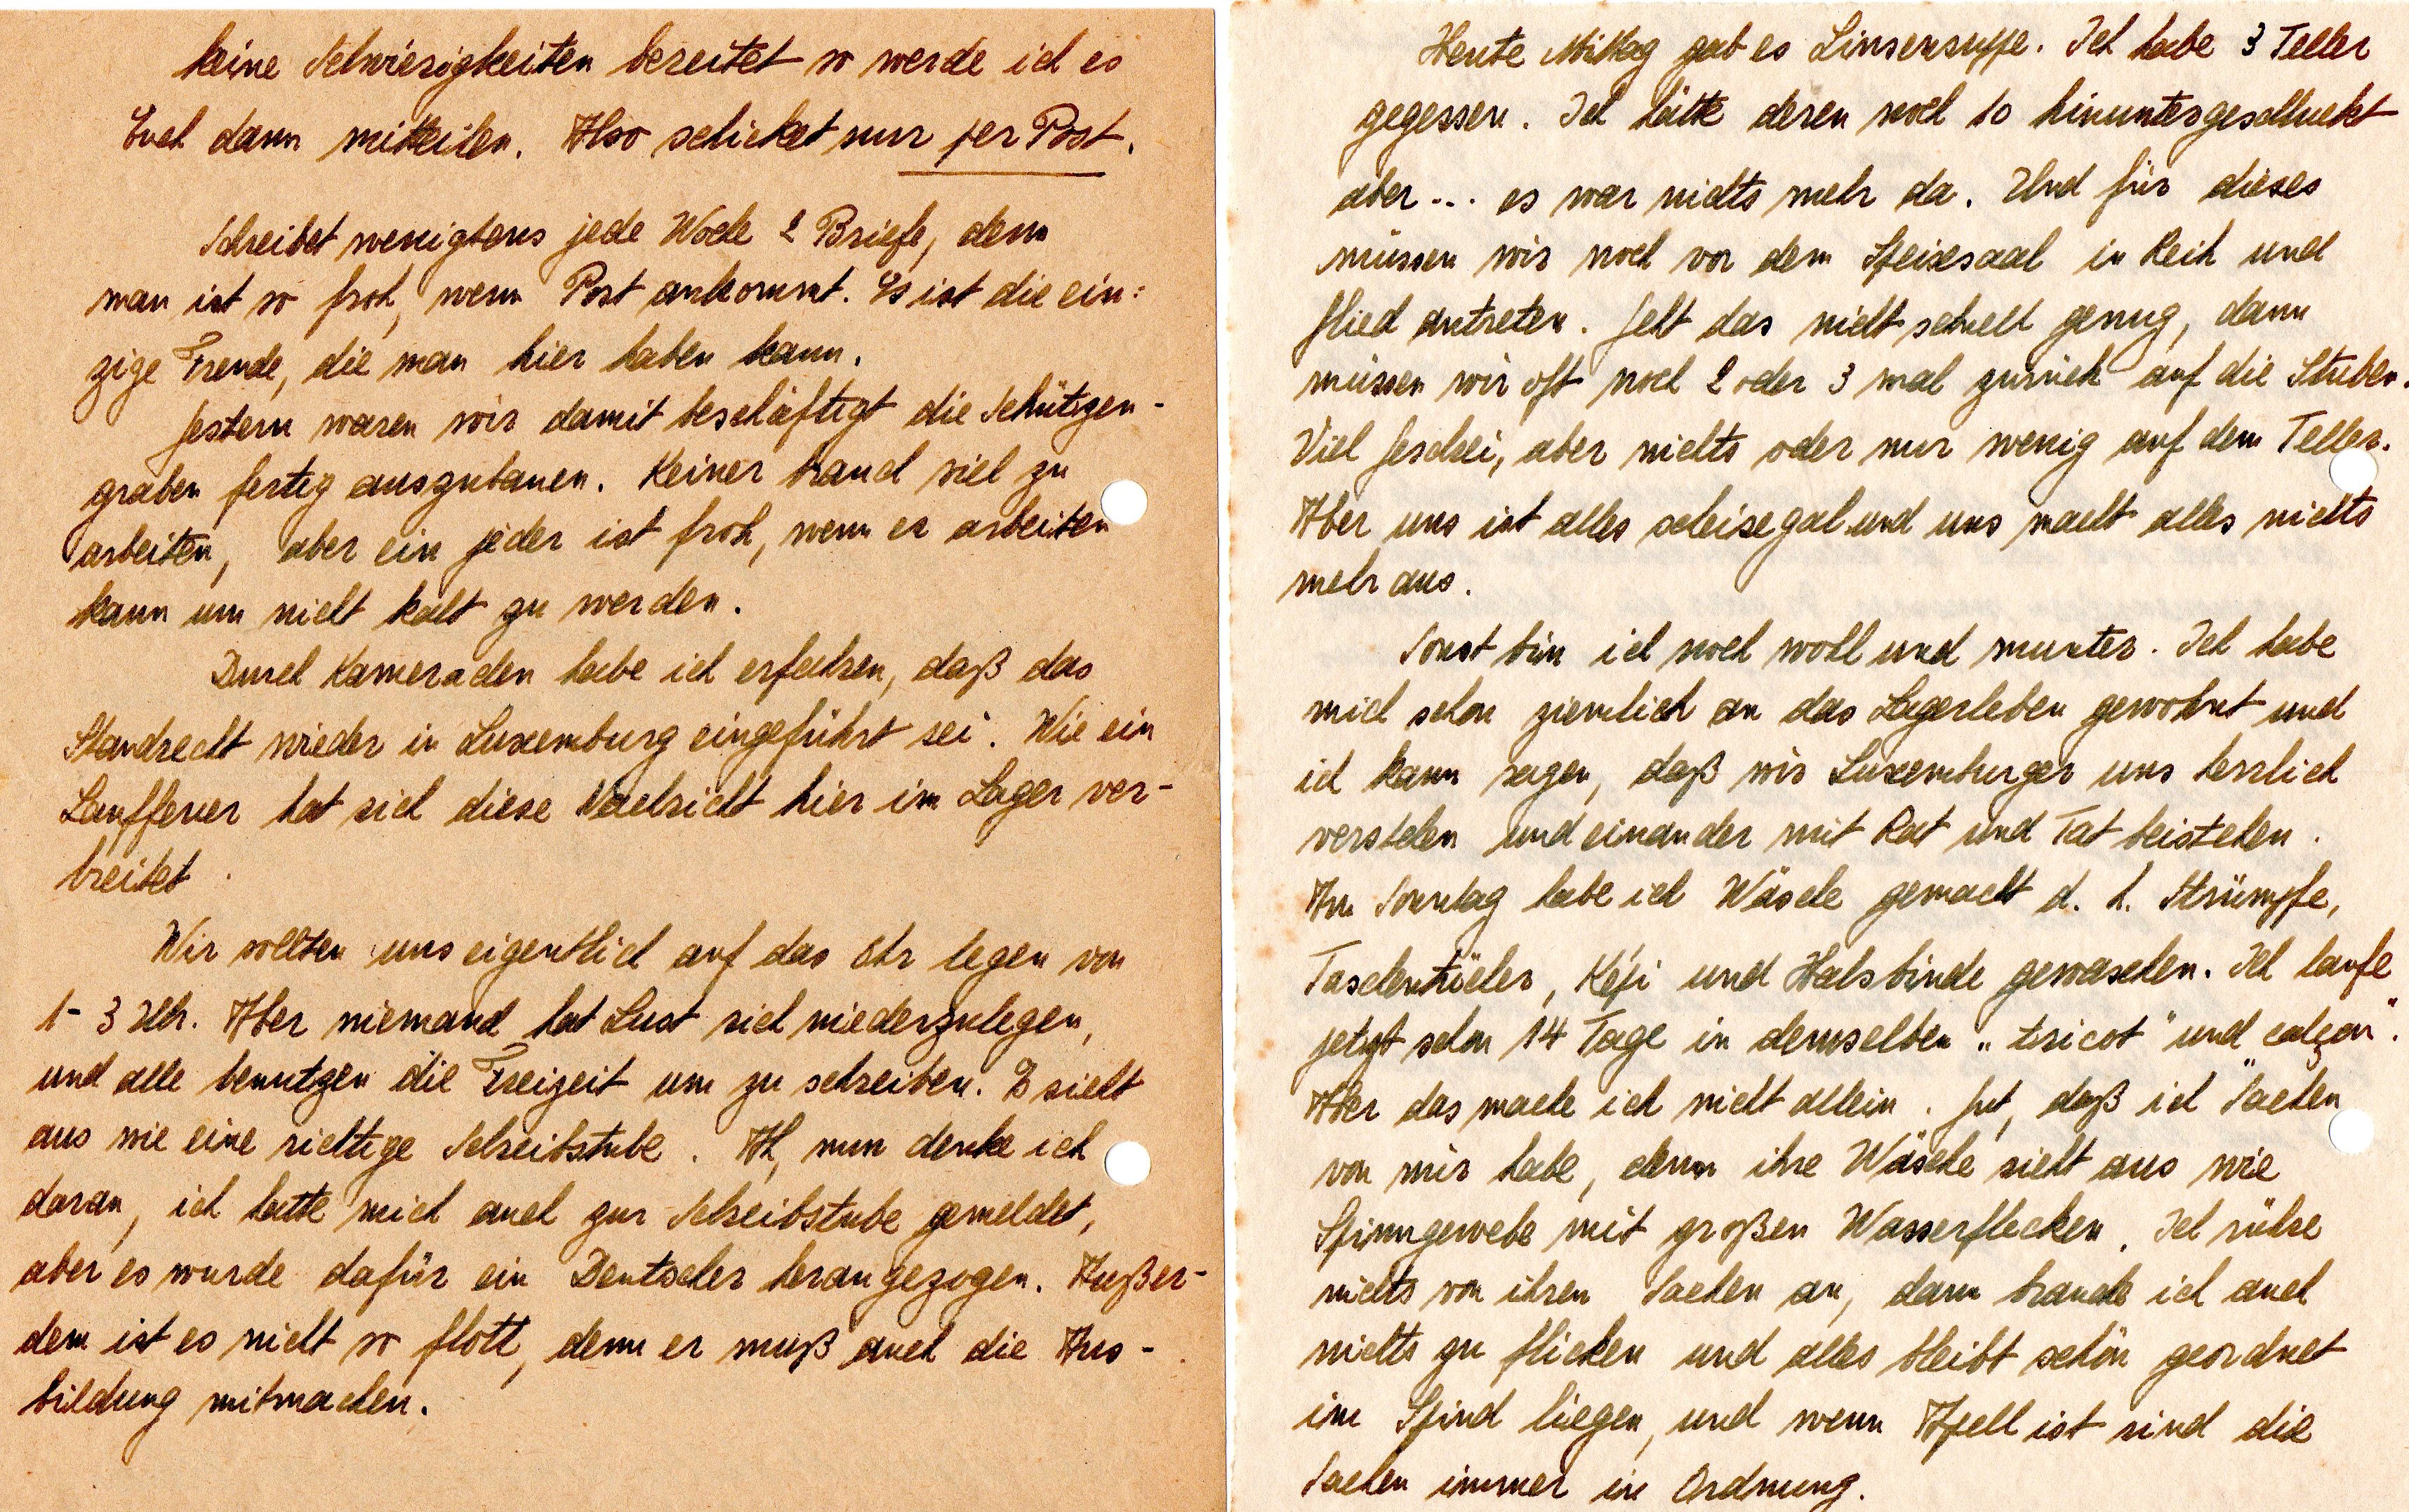 keine Schwierigkeiten bereitet so werde ich es
Euch dann mitteilen. Also schicket nur per Post.
Schreibet wenigstens jede Woche 2 Briefe, denn
man ist so froh, wenn Post ankommt. Es ist die ein:
zige Freude, die man hier haben kann.
Gestern waren wir damit beschäftigt die Schützen-
graben fertig auszubauen. Keiner brauch viel zu
arbeiten, aber ein jeder ist froh, wenn er arbeiten
kann um nicht kalt zu werden.
Durch Kameraden habe ich erfahren, daß das
Standrecht wieder in Luxemburg eingeführt sei. Wie ein
Lauffeuer hat sich diese Nachricht hier im Lager ver-
breitet.
Wir sollten uns eigentlich auf das Ohr legen von
1-3 Uhr. Aber niemand hat Lust sich niederzulegen,
und alle benutzen die Freizeit um zu schreiben. Es sieht
aus wie eine richtige Schreibstube. Ah, nun denke ich
daran, ich hatte mich auch zur Schreibstube gemeldet,
aber es wurde dafür ein Deutscher herangezogen. Außer-
dem ist es nicht so flott, denn er muß auch die Aus-
bildung mitmachen.
Heute Mittag gab es Linsensuppe. Ich habe 3 Teller
gegessen. Ich hätte deren noch 10 hinuntergeschluckt
aber... es war nichts mehr da. Und für dieses
müssen wir noch vor dem Speisesaal in Reih und
Glied antreten. Geht das nicht schnell genug, dann
müssen wir oft noch 2 oder 3 mal zurück auf die Stuben.
Viel Geschrei, aber nichts oder nur wenig auf dem Teller.
Aber uns ist alles scheisegal und uns macht alles nichts
mehr aus.
Sonst bin ich noch wohl und munter. Ich habe
mich schon ziemlich an das Lagerleben gewohnt und
ich kann sagen, daß wir Luxemburger uns herrlich
verstehen und einander mit Rat und Tat beistehen.
Am Sonntag habe ich Wäsche gemacht d. h. Strümpfe,
Taschentücher, Képi und Halsbinde gewaschen. Ich laufe
jetzt schon 14 Tage in demselben „tricot" und „calçon".
Aber das mache ich nicht allein. Gut, daß ich Sachen
von mir habe, denn ihre Wäsche sieht aus wie
Spinngewebe mit großen Wasserflecken. Ich rühre
nichts von ihren Sachen an, dann brauche ich auch
nichts zu flicken und alles bleibt schön geordnet
im Spind liegen, und wenn Apell ist sind die
Sachen immer in Ordnung.